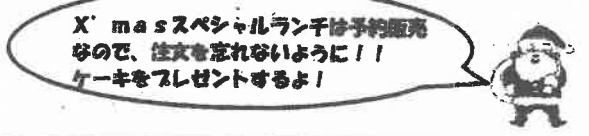 X'masスペシャルランチは予約販売
なので、注文を忘れないように！！
ケーキをプレゼントするよ！